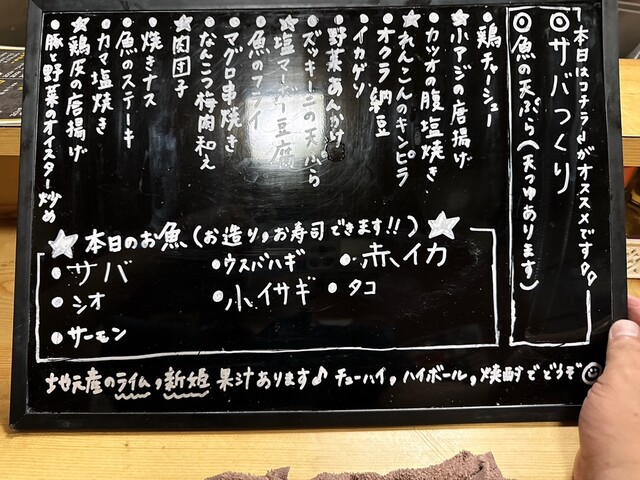 本日はコチラがオススメです♪
◎サバつくり
◎魚の天ぷら(天つゆあります)
・鶏チャーシュー
★小アジの唐揚げ
・カツオの腹塩焼き
★れんこんのキンピラ
・オクラ納豆
・イカゲソ
・野菜あんかけ
・ズッキーニの天ぷら
★塩マーボー豆腐
・魚のフライ
・マグロ串焼き
・なんこつ梅肉和え
★肉団子
・焼きナス
・魚のステーキ
・カマ塩焼き
★鶏皮の唐揚げ
豚と野菜のオイスター炒め
★本日のお魚(お造り,お寿司できます!!)★
・サバ
・シオ
・サーモン
・ウスバハギ
・小イサギ
・赤イカ
・タコ
地元産のライム,新姫果汁あります♪ チューハイ,ハイボール,焼酎でどうぞ☺